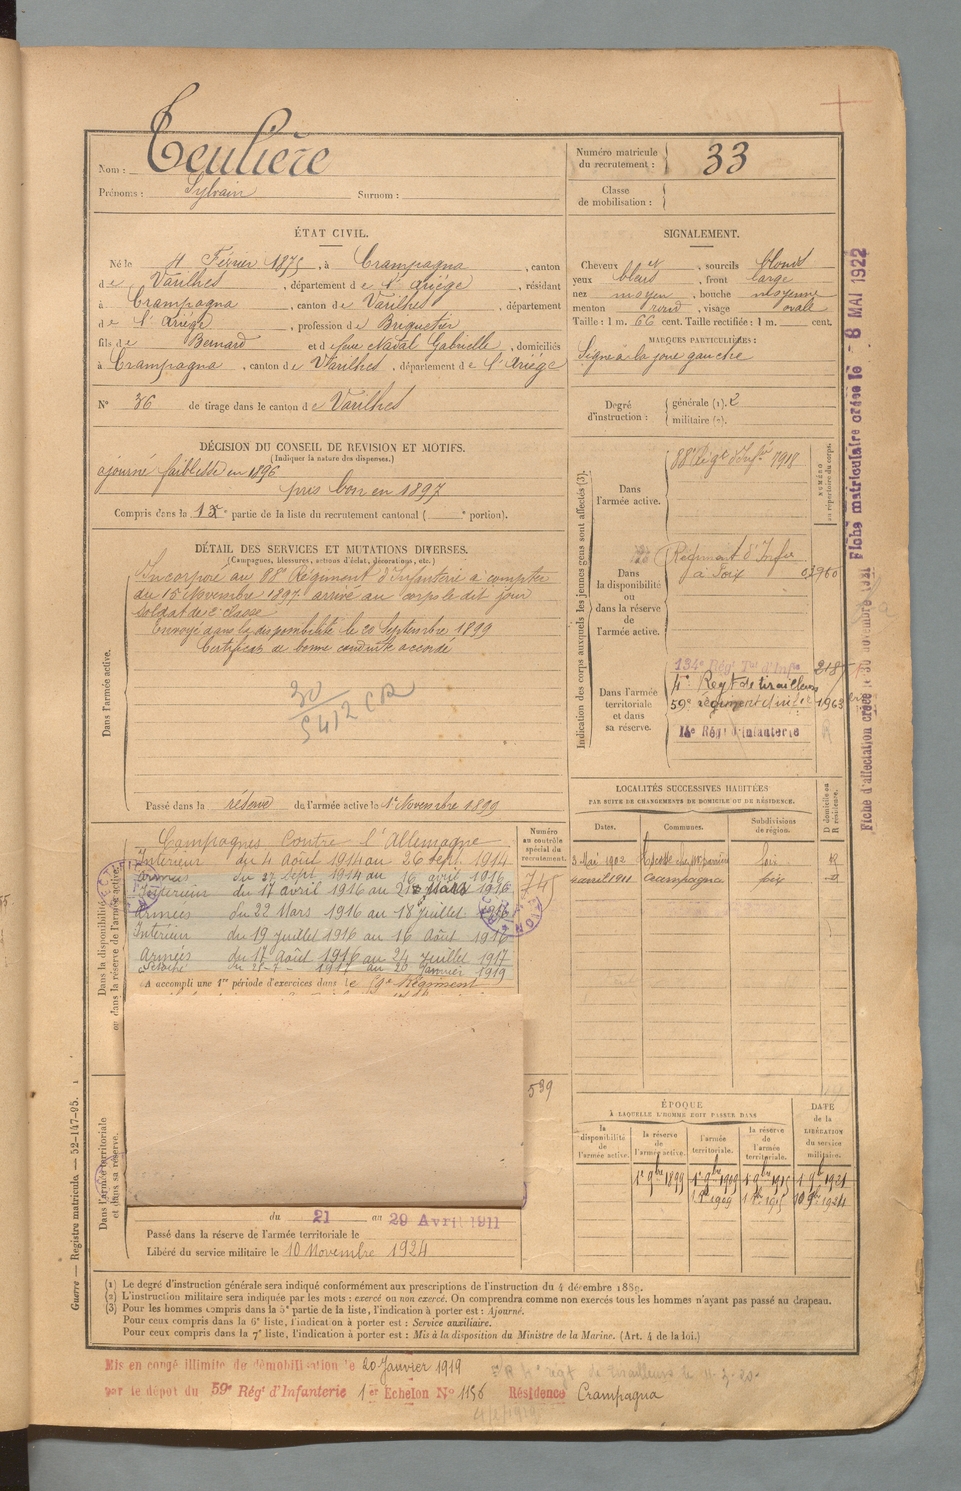 Nom : Teulière
Prénoms : Sylvain Surnom :
Numéro matricule du recrutement : 33
Classe de mobilisation :
ÉTAT CIVIL.
Né le 4 Février 1875, à Crampagna, canton
de Varilhes, département de l'Ariège, résidant
à Crampagna, canton de Varilhes, département
de l'Ariège, profession de Briquetier
fils de Bernard et de feue Nadal Gabrielle, domiciliés
à Crampagna, canton de Varilhes, département de l'Ariège
N° 36 de tirage dans le canton de Varilhes
SIGNALEMENT.
Cheveux et, sourcils blonds
yeux bleus, front large
nez moyen, bouche moyenne
menton rond, visage ovale
Taille : 1 m. 66 cent. Taille rectifiée : 1 m. cent.
MARQUES PARTICULIÈRES :
Signe à la joue gauche
Degré d'instruction : générale (1). 2
militaire (2).
DÉCISION DU CONSEIL DE REVISION ET MOTIFS.
(Indiquer la nature des dispenses.)
ajourné faiblesse en 1896
pris bon en 1897
Compris dans la 1re partie de la liste du recrutement cantonal ( e portion).
DÉTAIL DES SERVICES ET MUTATIONS DIVERSES.
(Campagnes, blessures, actions d'éclat, décorations, etc.)
Dans l'armée active.
Incorporé au 88e Régiment d'Infanterie à compter
du 15 Novembre 1897 arrivé au corps le dit jour
soldat de 2e classe
Envoyé dans la disponibilité le 20 Septembre 1899
Certificat de bonne conduite accordé
30
5412 CR
Passé dans la réserve de l'armée active le 1er Novembre 1899
Indication des corps auxquels les jeunes gens sont affectés (3).
NUMÉRO au répertoire du corps.
Dans l'armée active.
88e Régt d'Infie 7918
Dans la disponibilité ou dans la réserve de l'armée active.
Régiment d'Infie
à Foix 03960
Dans l'armée territoriale et dans sa réserve.
134e Régt Tal d'Infie 2187
4e Regt de tirailleurs
59e régiment d'infie 1963
14e Rég d'Infanterie
Fiche matriculaire créée le 8 MAI 1922
Fiche d'affectation créée le 30 novembre 1921
LOCALITÉS SUCCESSIVES HABITÉES
PAR SUITE DE CHANGEMENTS DE DOMICILE OU DE RÉSIDENCE.
Dates. Communes. Subdivisions de région. D domicile ou R résidence.
3 Mai 1902 Foix R
4 avril 1911 Crampagna foix
Dans la disponibilité ou dans la réserve de l'armée active.
Numéro au contrôle spécial du recrutement.
745
Campagnes Contre l'Allemagne
Intérieur du 4 Août 1914 au 26 Sept 1914
Armées du 27 Sept 1914 au 16 avril 1916
Intérieur du 17 avril 1916 au 21 Mars 1916
Armées du 22 Mars 1916 au 18 juillet 1916
Intérieur du 19 juillet 1916 au 16 Août 1916
Armées du 17 Août 1916 au 24 juillet 1917
1917 au 20 Janvier 1919
A accompli une 1re période d'exercices dans le Régiment
Dans l'armée territoriale et dans sa réserve.
539
du 21 au 29 Avril 1911
Passé dans la réserve de l'armée territoriale le
Libéré du service militaire le 10 Novembre 1924
ÉPOQUE
À LAQUELLE L'HOMME DOIT PASSER DANS
DATE de la LIBÉRATION du service militaire.
la disponibilité de l'armée active.
la réserve de l'armée active.
l'armée territoriale.
la réserve de l'armée territoriale.
1er 9bre 1899 1er 9bre 1909 1er 9bre 1915 1er 9bre 1921
1er 8bre 1909 1er 8bre 1915 10 9bre 1924
(1) Le degré d'instruction générale sera indiqué conformément aux prescriptions de l'instruction du 4 décembre 1889.
(2) L'instruction militaire sera indiquée par les mots : exercé ou non exercé. On comprendra comme non exercés tous les hommes n'ayant pas passé au drapeau.
(3) Pour les hommes compris dans la 5e partie de la liste, l'indication à porter est : Ajourné.
Pour ceux compris dans la 6e liste, l'indication à porter est : Service auxiliaire.
Pour ceux compris dans la 7e liste, l'indication à porter est : Mis à la disposition du Ministre de la Marine. (Art. 4 de la loi.)
Guerre — Registre matricule — 52-147-95.
Mis en congé illimité de démobilisation le 20 Janvier 1919
par le dépôt du 59e Régt d'Infanterie 1er Echelon N° 1156 Résidence Crampagna
4e régt de tirailleurs le